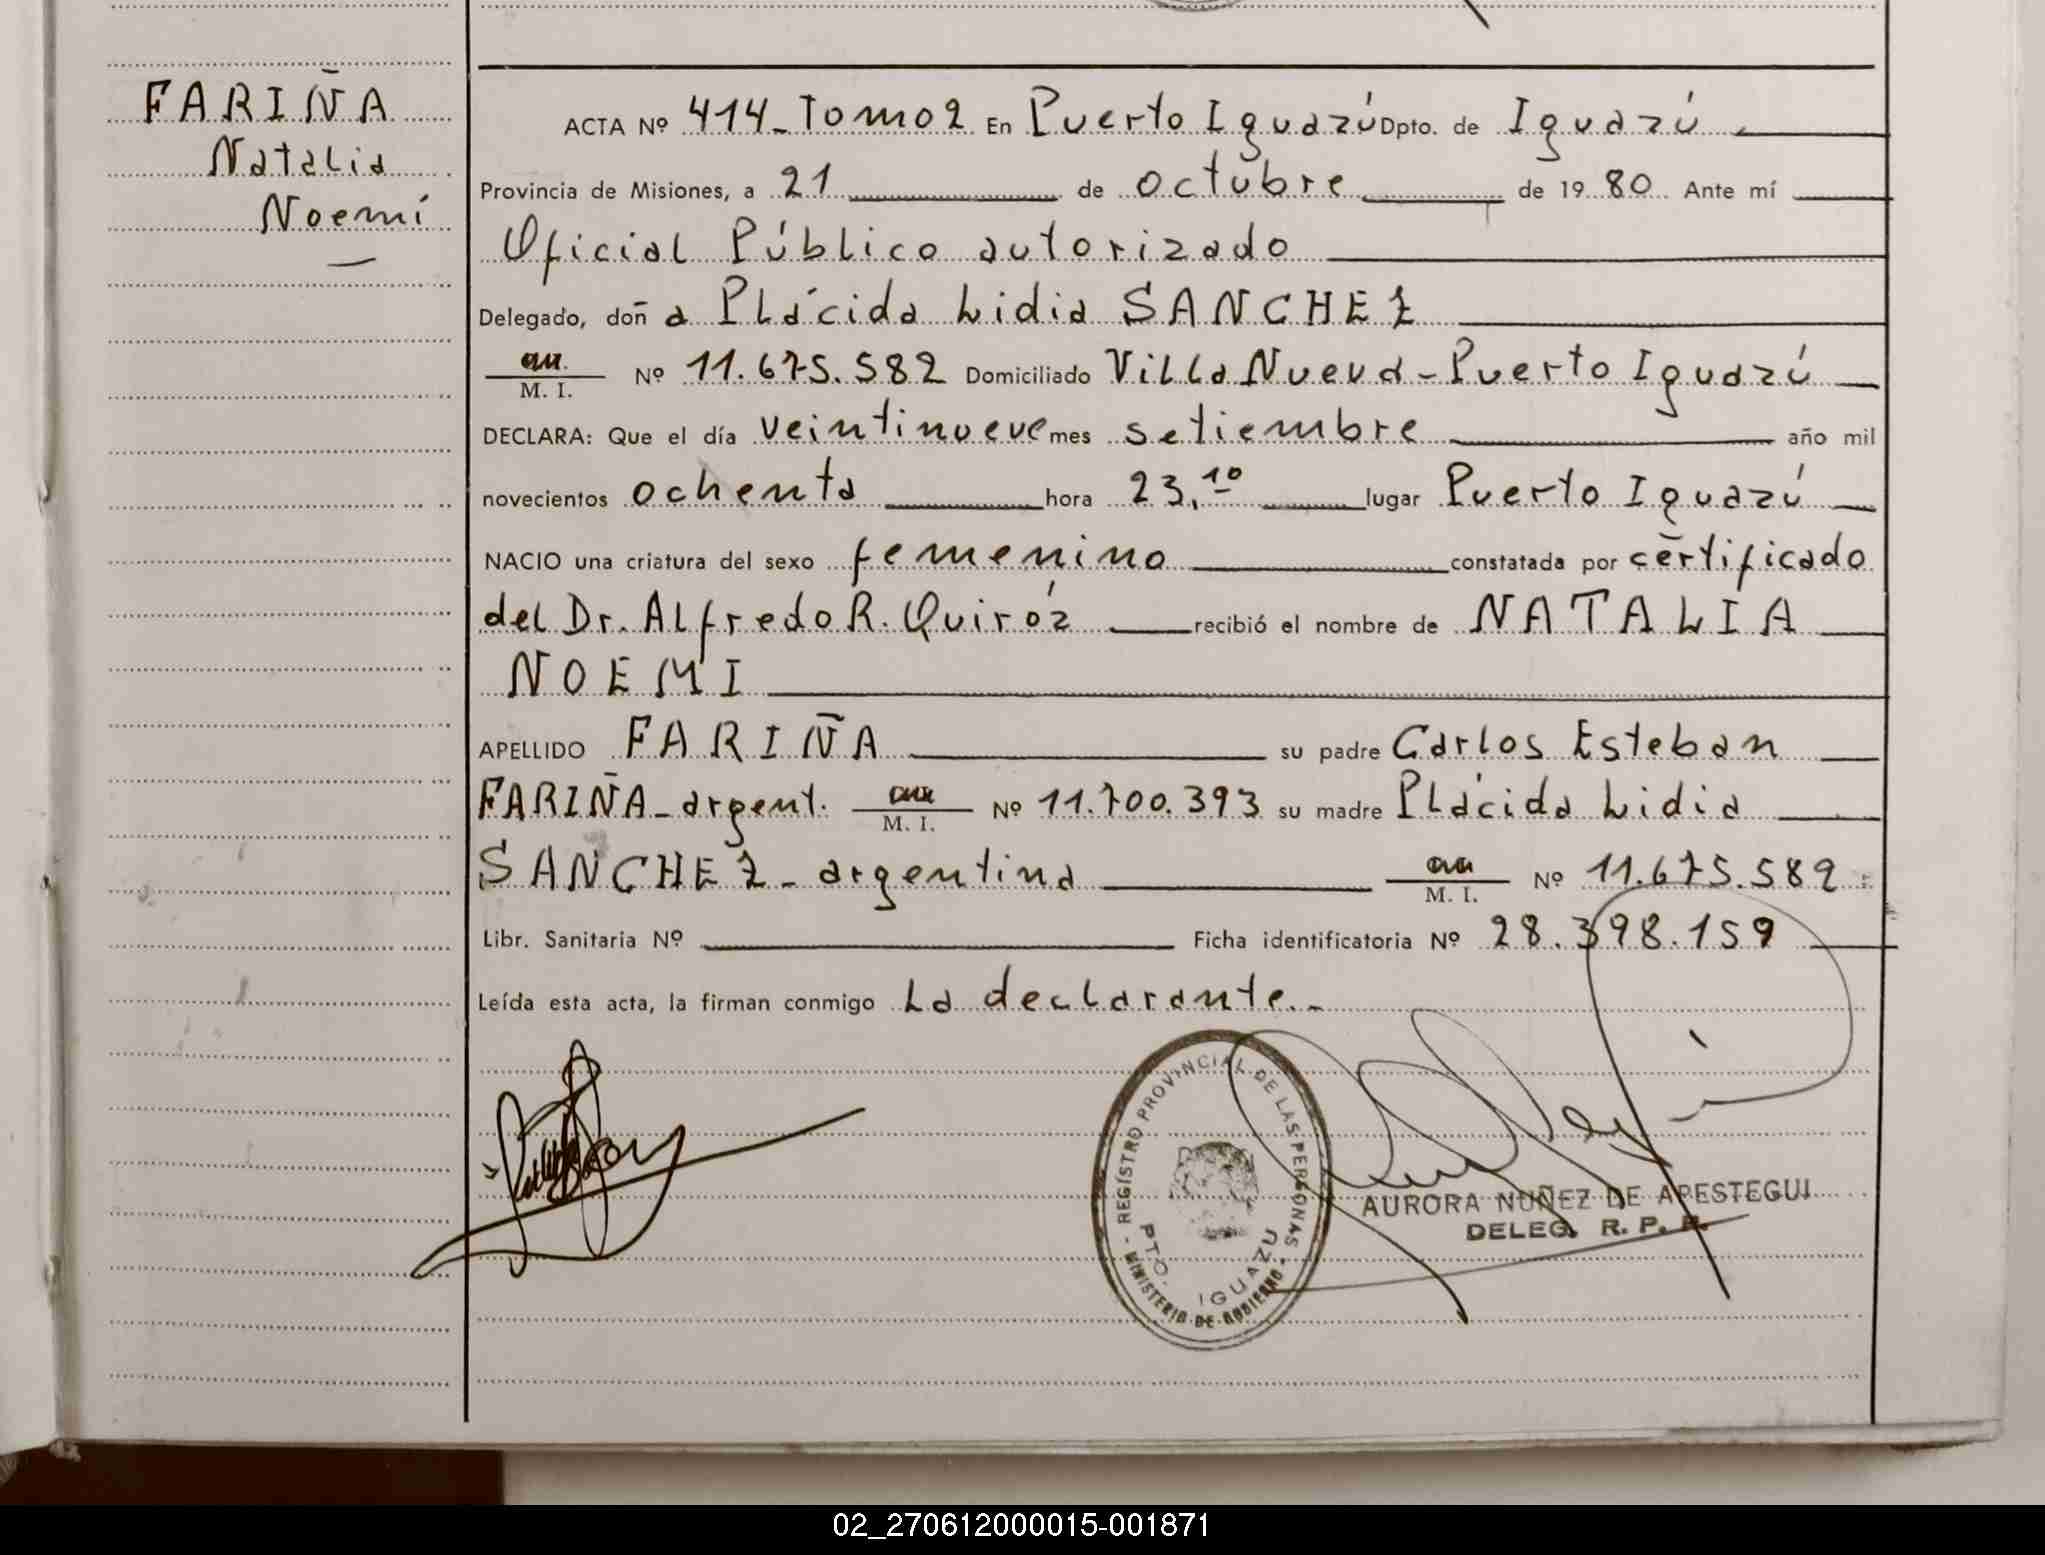 FARIÑA
Natalia
Noemí
ACTA Nº 414_Tomo 2 En Puerto Iguazú Dpto. de Iguazú
Provincia de Misiones, a 21 de octubre de 1980 Ante mí
Oficial Público autorizado
Delegado, doña Plácida Lidia SANCHEZ
M. I. Nº 11.675.582 Domiciliado Villa Nueva - Puerto Iguazú
DECLARA: Que el día veintinueve mes setiembre año mil
novecientos ochenta hora 23,10 lugar Puerto Iguazú
NACIO una criatura del sexo femenino constatada por certificado
del Dr. Alfredo R. Quiróz recibió el nombre de NATALIA
NOEMI
APELLIDO FARIÑA su padre Carlos Esteban
FARIÑA - argent. M. I. Nº 11.700.393 su madre Plácida Lidia
SANCHEZ - argentina M. I. Nº 11.675.582
Libr. Sanitaria Nº Ficha identificatoria Nº 28.398.159
Leída esta acta, la firman conmigo La declarante.-
REGISTRO PROVINCIAL DE LAS PERSONAS
PTO. IGUAZU
MINISTERIO DE GOBIERNO
AURORA NUÑEZ DE APESTEGUI
DELEG. R. P. P.
02_270612000015-001871